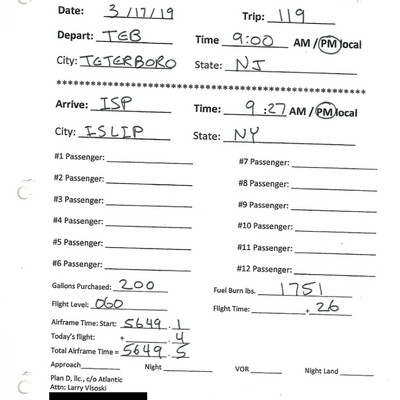 Date: 3/17/19 Trip: 119
Depart: TEB Time 9:00 AM / PM local
City: TETERBORO State: NJ
************************************************************
Arrive: ISP Time: 9:27 AM / PM local
City: ISLIP State: NY
#1 Passenger: #7 Passenger:
#2 Passenger: #8 Passenger:
#3 Passenger: #9 Passenger:
#4 Passenger: #10 Passenger:
#5 Passenger: #11 Passenger:
#6 Passenger: #12 Passenger:
Gallons Purchased: 200 Fuel Burn lbs. 1751
Flight Level: 060 Flight Time: . 26
Airframe Time: Start: 5649.1
Today's flight: + .4
Total Airframe Time = 5649.5
Approach Night VOR Night Land
Plan D, llc., c/o Atlantic
Attn: Larry Visoski